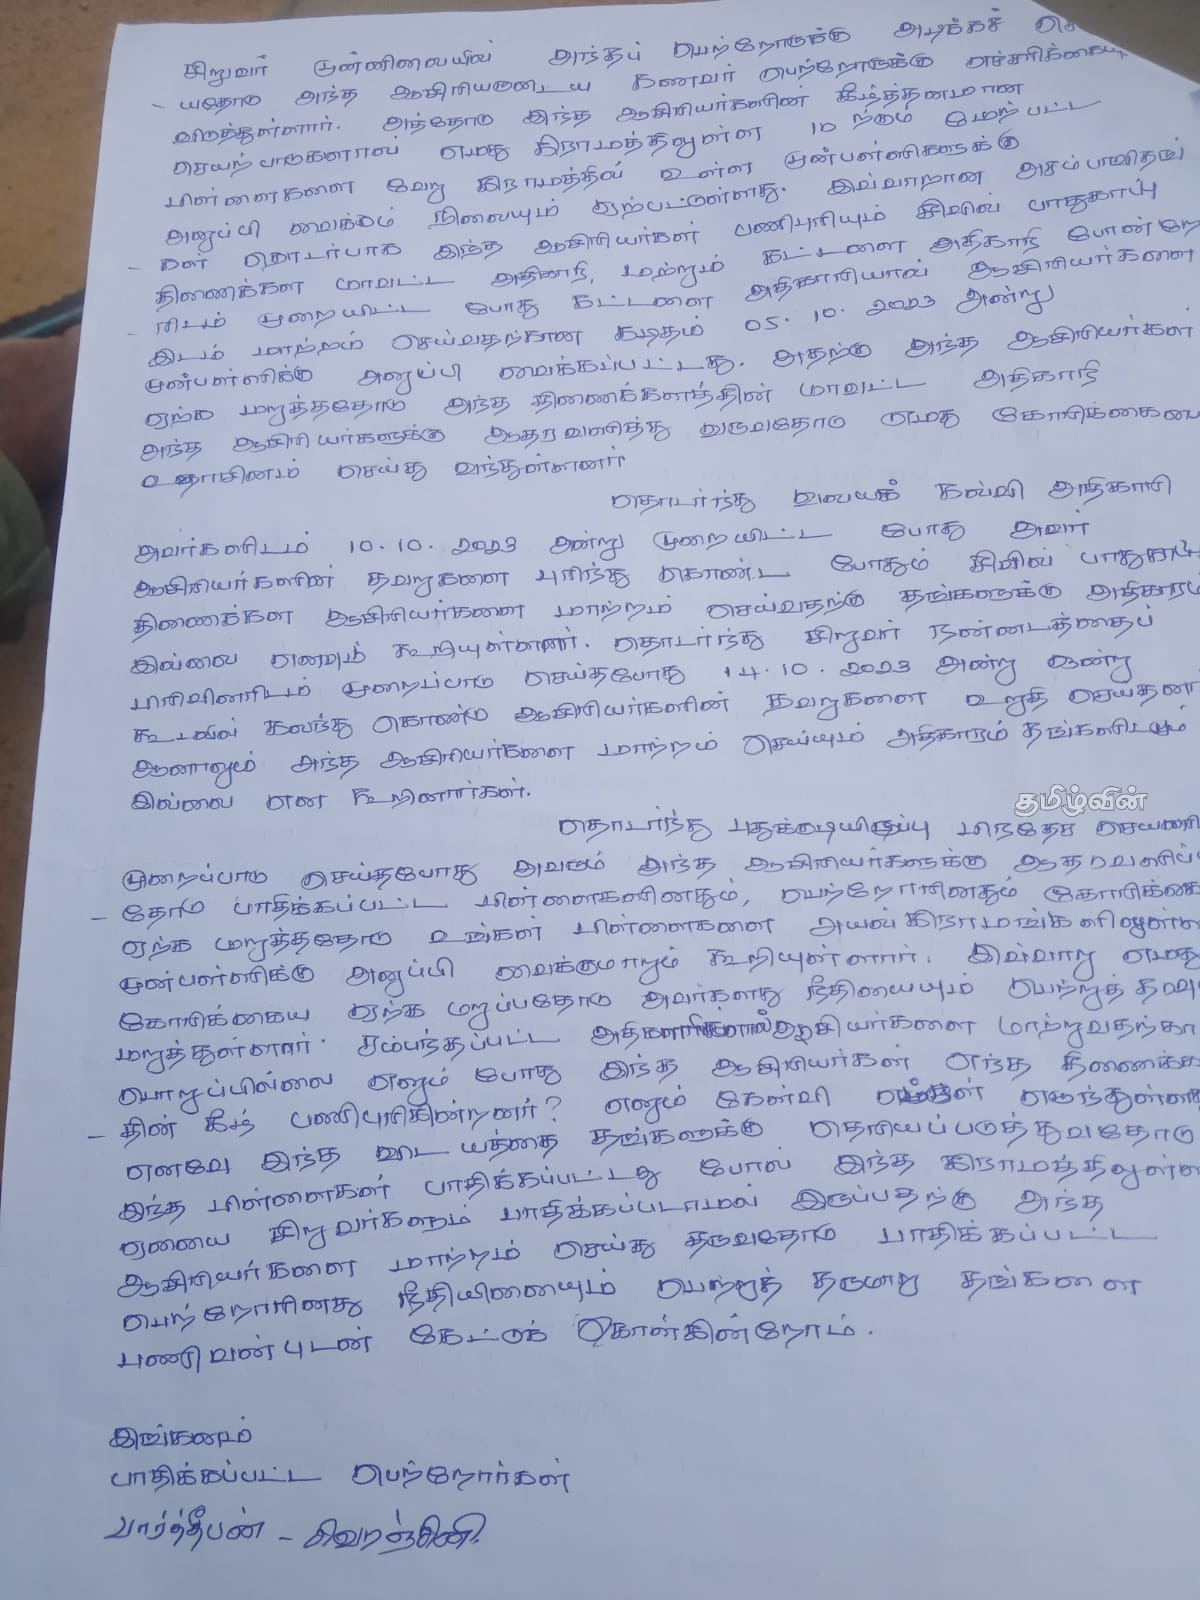 சிறுவர் முன்னிலையில் அந்தப் பெற்றோருக்கு அடிக்கச் செ
- யதோடு அந்த ஆசிரியருடைய கணவர் பெற்றோருக்கு எச்சரிக்கையு
விடுத்துள்ளார். அத்தோடு இந்த ஆசிரியர்களின் கீழ்த்தனமான
செயற்பாடுகளால் எமது கிராமத்திலுள்ள 10 ற்கும் மேற்பட்ட
பிள்ளைகளை வேறு கிராமத்தில் உள்ள முன்பள்ளிகளுக்கு
அனுப்பி வைக்கும் நிலையும் ஏற்பட்டுள்ளது. இவ்வாறான அசம்பாவிதங்
- கள் தொடர்பாக இந்த ஆசிரியர்கள் பணிபுரியும் சிவில் பாதுகாப்பு
திணைக்கள மாவட்ட அதிகாரி, மற்றும் கட்டளை அதிகாரி போன்றோ
- ரிடம் முறையிட்ட போது கட்டளை அதிகாரியால் ஆசிரியர்களை
இடம் மாற்றம் செய்வதற்கான கடிதம் 05.10.2023 அன்று
முன்பள்ளிக்கு அனுப்பி வைக்கப்பட்டது. அதற்கு அந்த ஆசிரியர்கள்
ஏற்க மறுத்ததோடு அந்த திணைக்களத்தின் மாவட்ட அதிகாரி
அந்த ஆசிரியர்களுக்கு ஆதரவளித்து வருவதோடு எமது கோரிக்கையை
உதாசினம் செய்து வந்துள்ளனர்
தொடர்ந்து வலயக் கல்வி அதிகாரி
அவர்களிடம் 10.10.2023 அன்று முறையிட்ட போது அவர்
ஆசிரியர்களின் தவறுகளை புரிந்து கொண்ட போதும் சிவில் பாதுகாப்பு
திணைக்கள ஆசிரியர்களை மாற்றம் செய்வதற்கு தங்களுக்கு அதிகாரம்
இல்லை எனவும் கூறியுள்ளனர். தொடர்ந்து சிறுவர் நன்னடத்தைப்
பிரிவினரிடம் முறைப்பாடு செய்தபோது 14.10.2023 அன்று ஒன்று
கூடலில் கலந்து கொண்டு ஆசிரியர்களின் தவறுகளை உறுதி செய்தனர்
ஆனாலும் அந்த ஆசிரியர்களை மாற்றம் செய்யும் அதிகாரம் தங்களிடமும்
இல்லை என கூறினார்கள்.
தமிழ்வின்
தொடர்ந்து புதுக்குடியிருப்பு பிரதேச செயலரி
முறைப்பாடு செய்தபோது அவரும் அந்த ஆசிரியர்களுக்கு ஆதரவளிப்ப
- தோடு பாதிக்கப்பட்ட பிள்ளைகளினதும், பெற்றோரினதும் கோரிக்கை
ஏற்க மறுத்ததோடு உங்கள் பிள்ளைகளை அயல்கிராமங்களிலுள்ள
முன்பள்ளிக்கு அனுப்பி வைக்குமாறும் கூறியுள்ளார். இவ்வாறு எமது
கோரிக்கையை ஏற்க மறுப்பதோடு அவர்களது நீதியையும் பெற்றுத் தர
மறுத்துள்ளார். சம்பந்தப்பட்ட அதிகாரிகளால் ஆசிரியர்களை மாற்றுவதற்கா
பொறுப்பில்லை எனும் போது இந்த ஆசிரியர்கள் எந்த திணைக்கள
- தின் கீழ் பணிபுரிகின்றனர்? எனும் கேள்வி எழுந்துள்ள
எனவே இந்த விடயத்தை தங்களுக்கு தெரியப்படுத்துவதோடு
இந்த பிள்ளைகள் பாதிக்கப்பட்டது போல் இந்த கிராமத்திலுள்ள
ஏனைய சிறுவர்களும் பாதிக்கப்படாமல் இருப்பதற்கு அந்த
ஆசிரியர்களை மாற்றம் செய்து தருவதோடு பாதிக்கப்பட்ட
பெற்றோரினது நீதியினையும் பெற்றுத் தருமாறு தங்களை
பணிவன்புடன் கேட்டுக் கொள்கின்றோம்.
இங்கனம்
பாதிக்கப்பட்ட பெற்றோர்கள்
பார்த்தீபன் - சிவரஞ்சினி.